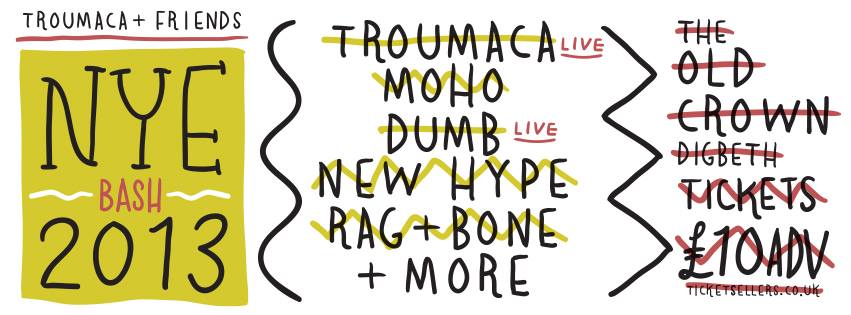 TROUMACA + FRIENDS
NYE
BASH
2013
TROUMACA LIVE
MOHO
DUMB LIVE
NEW HYPE
RAG + BONE
+ MORE
THE
OLD
CROWN
DIGBETH
TICKETS
£10ADV
TICKETSELLERS.CO.UK